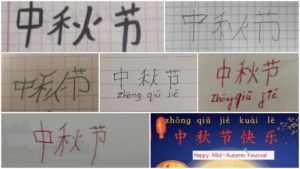 中秋节
中秋节
中秋节
中秋节
zhōng qiū jié
中秋节
zhōng qiū jié
中秋节
zhōng qiū jié kuài lè
中秋节快乐
Happy Mid-Autumn Festival